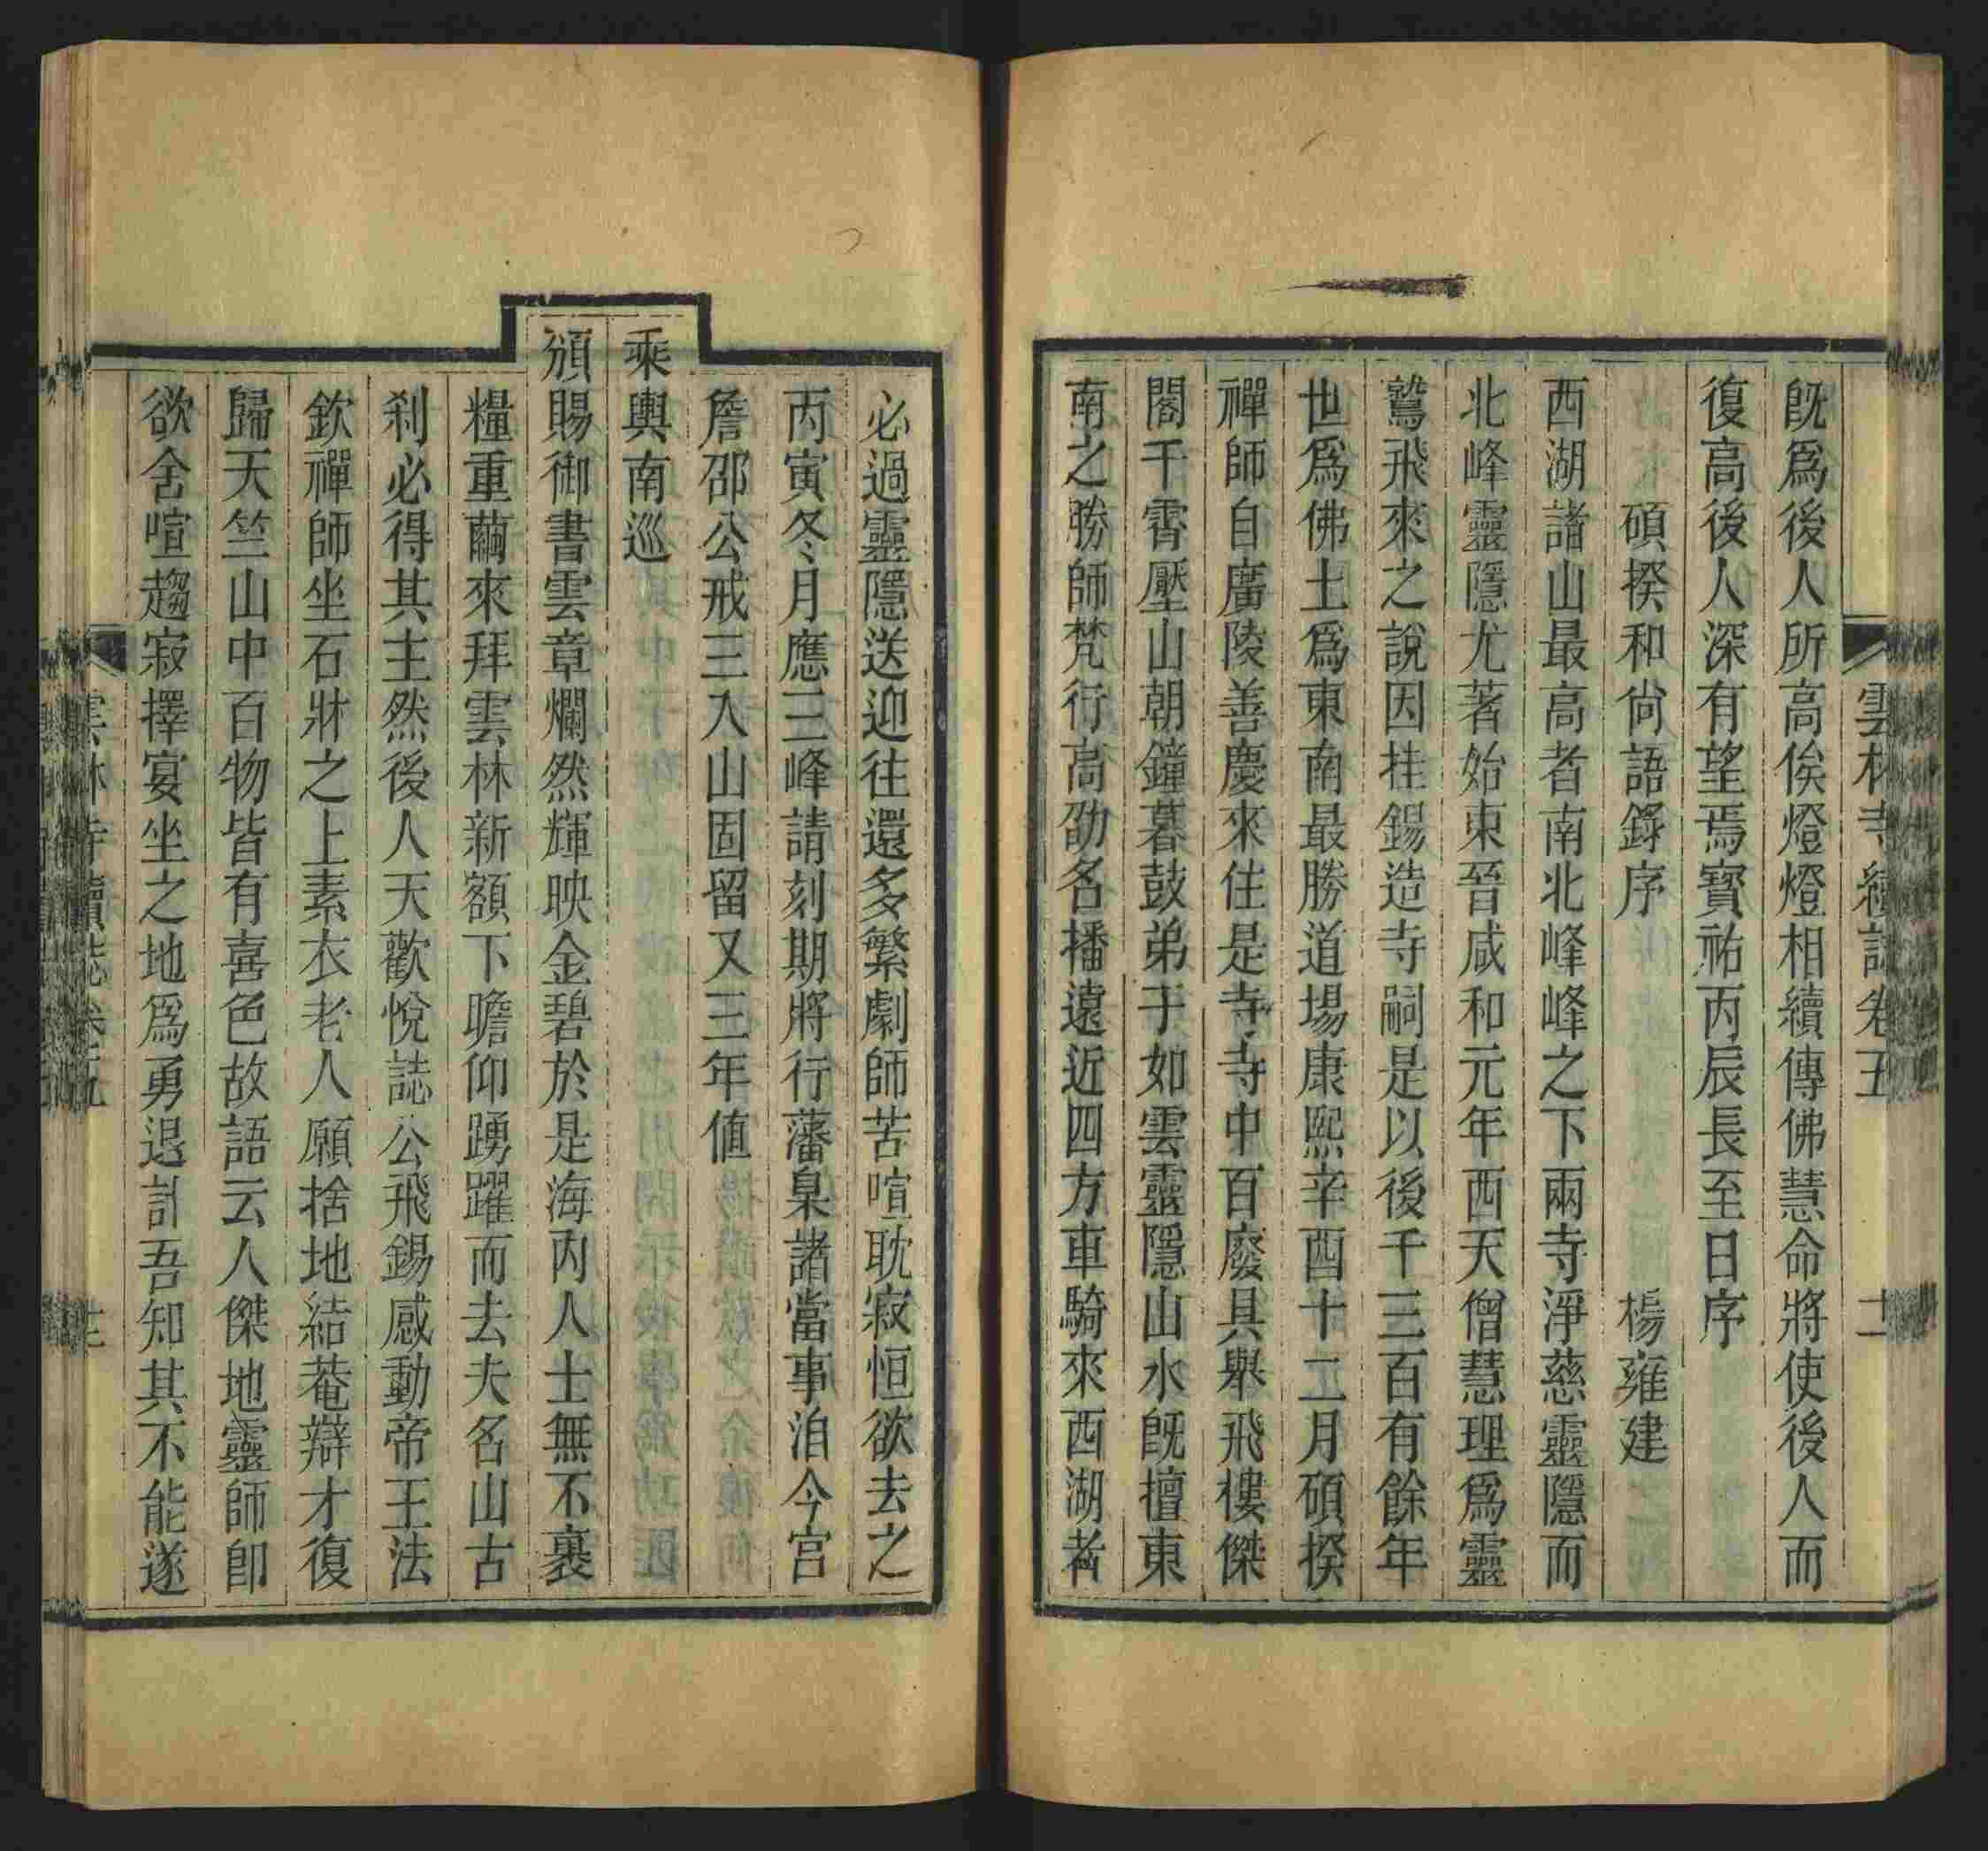 雲林寺續誌卷五
既爲後人所高俟燈燈相續傳佛慧命將使後人而
復高後人深有望焉寳祐丙辰長至日序
碩揆和尙語錄序　楊雍建
西湖諸山最高者南北峰峰之下兩寺淨慈靈隱而
北峰靈隱尤著始東晉咸和元年西天僧慧理爲靈
鷲飛來之說因挂錫造寺嗣是以後千三百有餘年
世爲佛土爲東南最勝道場康熙辛酉十二月碩揆
禪師自廣陵善慶來住是寺寺中百廢具舉飛樓傑
閣干霄壓山朝鐘暮鼓弟子如雲靈隱山水旣擅東
南之勝師梵行高劭名播遠近四方車騎來西湖者
必過靈隱送迎往還多繁劇師苦喧耽寂恒欲去之
丙寅冬月應三峰請刻期將行藩臬諸當事洎今宫
詹邵公戒三入山固留又三年值
乘輿南巡
頒賜御書雲章爛然輝映金碧於是海內人士無不裹
糧重繭來拜雲林新額下瞻仰踴躍而去夫名山古
刹必得其主然後人天歡悅誌公飛錫感動帝王法
欽禪師坐石牀之上素衣老人願捨地結菴辯才復
歸天竺山中百物皆有喜色故語云人傑地靈師卽
欲舍喧趨寂擇宴坐之地爲勇退計吾知其不能遂
雲林寺續誌卷五